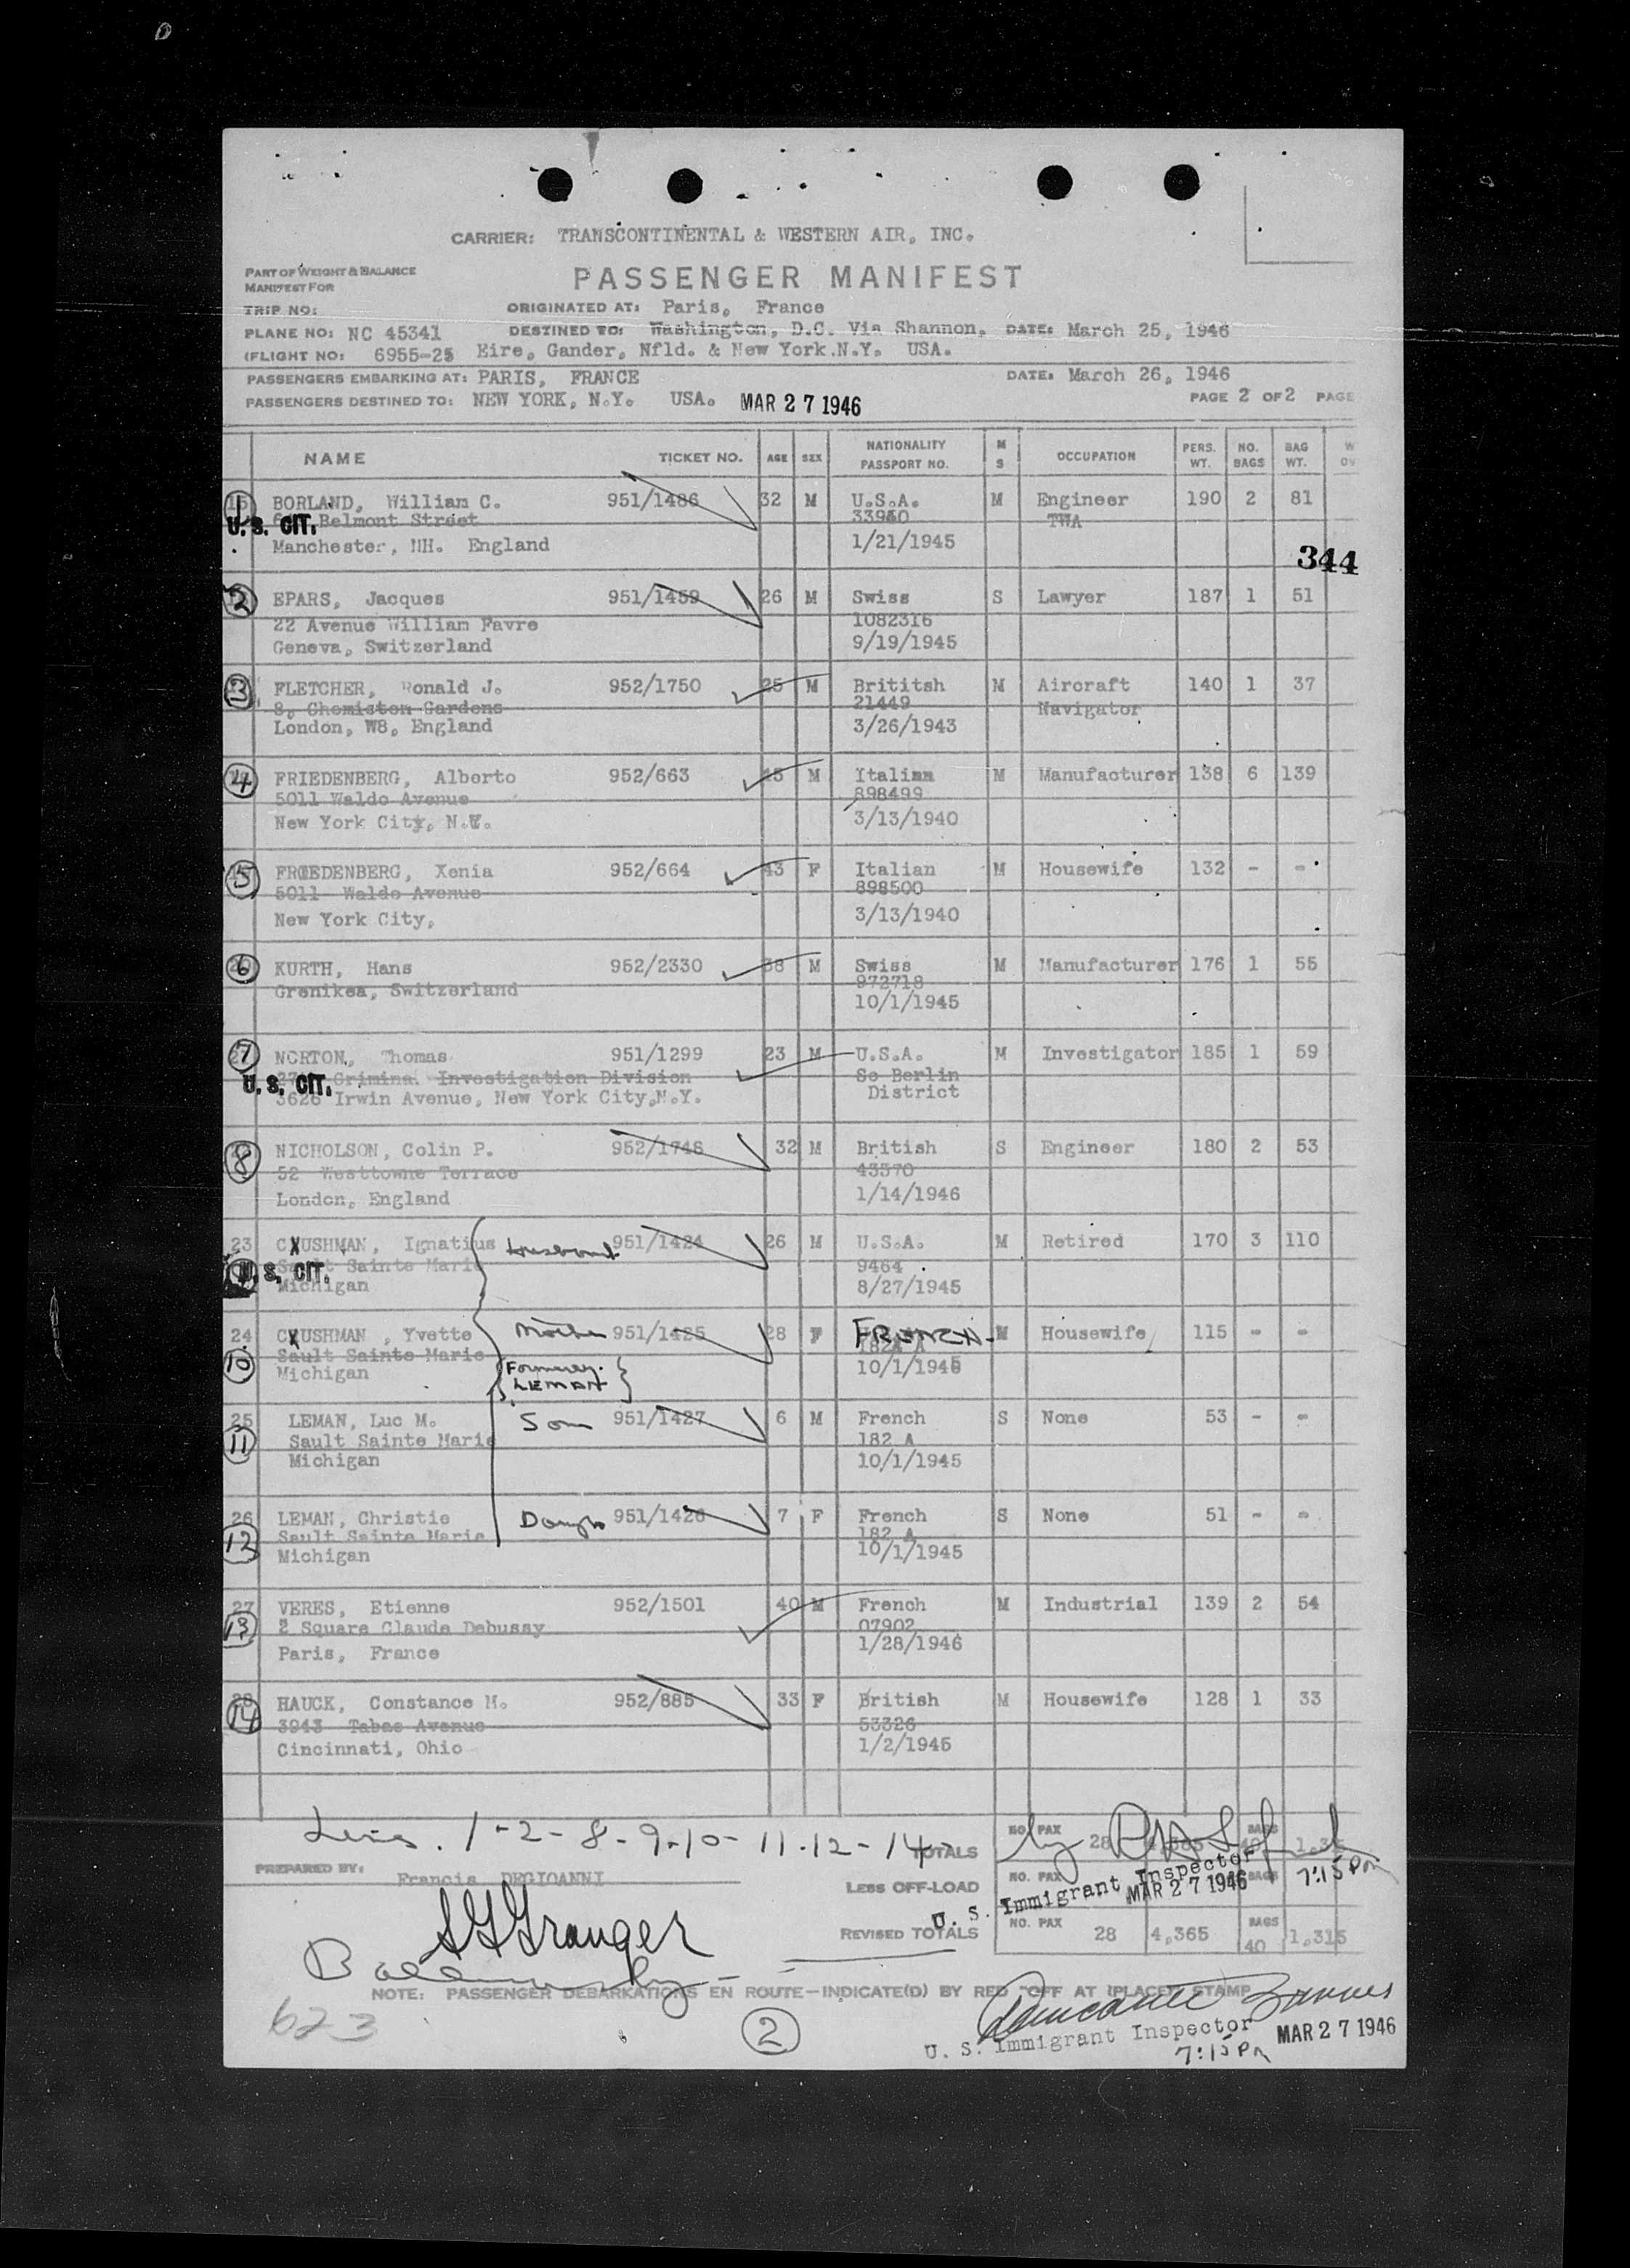 CARRIER: TRANSCONTINENTAL & WESTERN AIR, INC.
PART OF WEIGHT & BALANCE
MANIFEST FOR
PASSENGER MANIFEST
TRIP NO: ORIGINATED AT: Paris, France
PLANE NO: NC 45341 DESTINED TO: Washington, D.C. Via Shannon, DATE: March 25, 1946
(FLIGHT NO: 6955-25 Eire, Gander, Nfld. & New York.N.Y. USA.
PASSENGERS EMBARKING AT: PARIS, FRANCE DATE: March 26, 1946
PASSENGERS DESTINED TO: NEW YORK, N.Y. USA. MAR 27 1946 PAGE 2 OF 2 PAGE
NAME TICKET NO. AGE SEX NATIONALITY PASSPORT NO. M S OCCUPATION PERS. WT. NO. BAGS BAG WT.
1 BORLAND, William C. 951/1486 32 M U.S.A. M Engineer 190 2 81
U.S. CIT. Belmont Street 33950 TWA
Manchester, NH. England 1/21/1945
344
2 EPARS, Jacques 951/1459 26 M Swiss S Lawyer 187 1 51
22 Avenue William Favre 1082316
Geneva, Switzerland 9/19/1945
3 FLETCHER, Ronald J. 952/1750 25 M Brititsh M Aircraft 140 1 37
8, Chemiston Gardens 21449 Navigator
London, W8, England 3/26/1943
4 FRIEDENBERG, Alberto 952/663 45 M Italian M Manufacturer 138 6 139
5011 Waldo Avenue 898499
New York City, N.Y. 3/13/1940
5 FRIEDENBERG, Xenia 952/664 43 F Italian M Housewife 132 - -
5011 Waldo Avenue 898500
New York City, 3/13/1940
6 KURTH, Hans 952/2330 38 M Swiss M Manufacturer 176 1 55
Grenikea, Switzerland 972718
10/1/1945
7 NORTON, Thomas 951/1299 23 M U.S.A. M Investigator 185 1 59
U.S. CIT. Criminal Investigation Division So Berlin
3626 Irwin Avenue, New York City,N.Y. District
8 NICHOLSON, Colin P. 952/1746 32 M British S Engineer 180 2 53
52 Westtowne Terrace 43370
London, England 1/14/1946
23 CXUSHMAN, Ignatius Husband 951/1424 26 M U.S.A. M Retired 170 3 110
U.S. CIT. Sault Sainte Marie 9464
Michigan 8/27/1945
24 CXUSHMAN , Yvette Mother 951/1425 28 F FRENCH - M Housewife 115 - -
10 Sault Sainte Marie 182A A
Michigan (Formerly LEMAN) 10/1/1945
25 LEMAN, Luc M. Son 951/1427 6 M French S None 53 - -
11 Sault Sainte Marie 182 A
Michigan 10/1/1945
26 LEMAN, Christie 951/1426 7 F French S None 51 - -
12 Sault Sainte Marie 182 A
Michigan 10/1/1945
27 VERES, Etienne 952/1501 40 M French M Industrial 139 2 54
13 2 Square Claude Debussy 07902
Paris, France 1/28/1946
28 HAUCK, Constance M. 952/885 33 F British M Housewife 128 1 33
14 3943 Tabac Avenue 53326
Cincinnati, Ohio 1/2/1945
Lines. 1-2-8-9-10-11-12-14 TOTALS NO. PAX 28 4,365 BAGS 40
PREPARED BY: Francis DEGIOANNI
LESS OFF-LOAD NO. PAX BAGS 7:15 PM
U. S. Immigrant Inspector MAR 27 1946
REVISED TOTALS NO. PAX 28 4,365 BAGS 40 1,315
NOTE: PASSENGER DEBARKATIONS EN ROUTE—INDICATE(D) BY RED "OFF AT (PLACE)" STAMP
623 2 U. S. Immigrant Inspector MAR 27 1946
7:15 PM